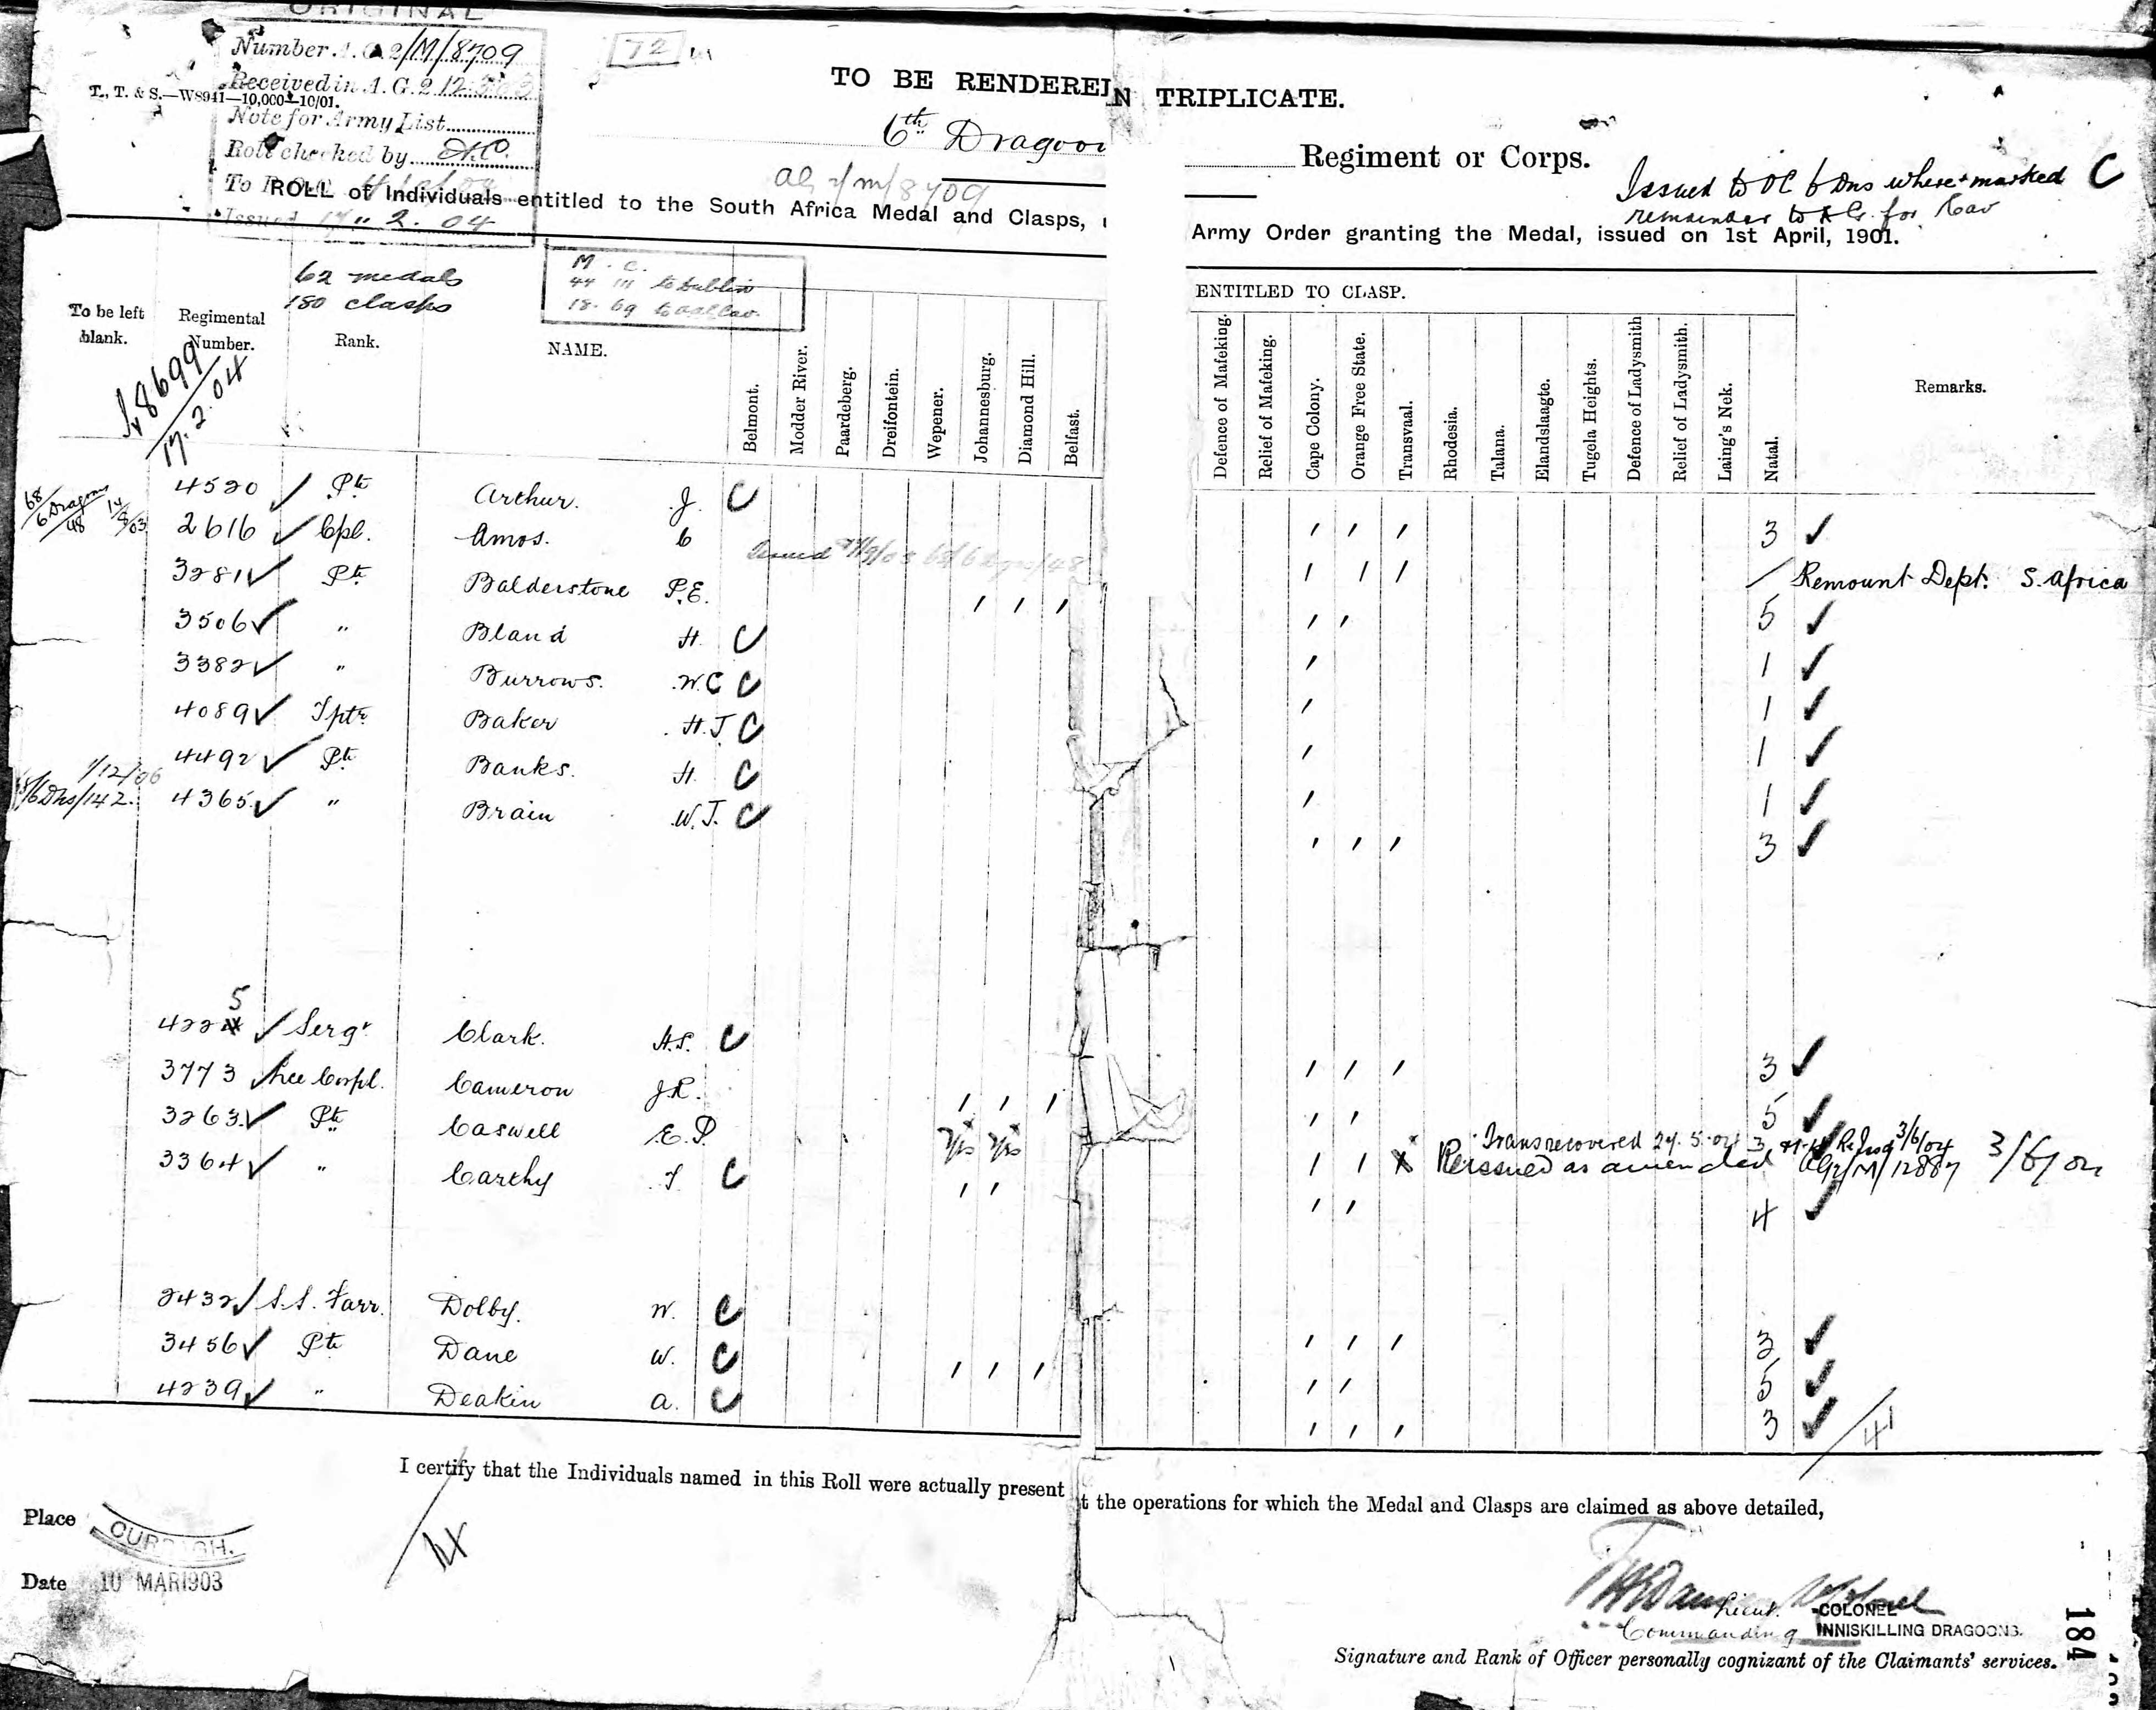 ORIGINAL
Number A.G. 2/M/8709
Received in A.G.2 12.3.03
T., T. & S.—W8941—10,000—10/01.
Note for Army List
Roll checked by
Issued 17" 2. 04
72
TO BE RENDERED IN TRIPLICATE.
6th Dragoon
Regiment or Corps.
AG 2/M/8709
Issued to OC 6 Dns where marked C
remainder to AG. for Cav
ROLL of Individuals entitled to the South Africa Medal and Clasps,
Army Order granting the Medal, issued on 1st April, 1901.
62 medals
180 clasps
M. C.
44 111 to Dublin
18. 69 to Cav.
ENTITLED TO CLASP.
To be left blank. Regimental Number. Rank. NAME. Belmont. Modder River. Paardeberg. Dreifontein. Wepener. Johannesburg. Diamond Hill. Belfast. Defence of Mafeking. Relief of Mafeking. Cape Colony. Orange Free State. Transvaal. Rhodesia. Talana. Elandslaagte. Tugela Heights. Defence of Ladysmith Relief of Ladysmith. Laing's Nek. Natal. Remarks.
8699
17.2.04
4520 ✓ Pte Arthur. J. C / / / 3 ✓
68/6 Drags/48 14/9/03 2616 ✓ Cpl. Amos. C / / / / Remount Dept. S. Africa
3281 ✓ Pte Balderstone P.E. / / / / / 5 ✓
3506 ✓ " Bland H. C / 1 ✓
3382 ✓ " Burrows. W.C C / 1 ✓
4089 ✓ Tptr Baker H.J C / 1 ✓
4492 ✓ Pte Banks. H. C / 1 ✓
1/12/06
6 Dns/142. 4365 ✓ " Brain W.J. C / / / 3 ✓
5
4224 ✓ Sergt Clark. H.S. C / / / 3 ✓
3773 ✓ Lce Corpl. Cameron J.R. / / / / / 5 ✓
Trans recovered 24.5.04 3 3/6/04
3263 ✓ Pte Caswell E.P. yes yes / / X Reissued as amended AG2/M/12887 3/6/04
3364 ✓ " Carthy T. C / / / / 4 ✓
2432 ✓ S.S. Farr. Dolby. W. C / / / 3 ✓
3456 ✓ Pte Dane W. C / / / / / 5 ✓
4239 ✓ " Deakin A. C / / / 3 ✓
/41
I certify that the Individuals named in this Roll were actually present at the operations for which the Medal and Clasps are claimed as above detailed,
Place CURRAGH.
/14
Date 10 MAR 1903
Lieut. COLONEL
Commanding INNISKILLING DRAGOONS.
Signature and Rank of Officer personally cognizant of the Claimants' services.
184